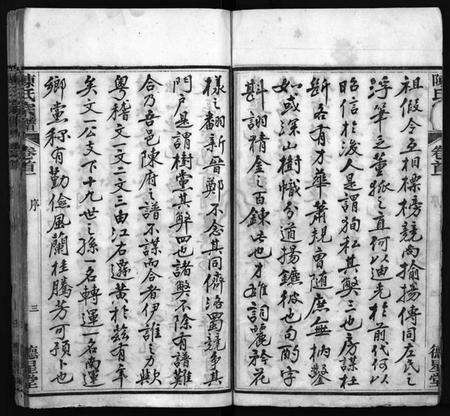 陳氏
卷首
德星堂
祖假令互相標榜競尚揄揚傳同左氏之
浮華乏董狐之直何以迪光於前代何以
昭信於後人是謂狥私其弊三也房謀杜
斷各有才華蕭規曹隨庶無枘鑿
如或深山樹幟分道揚鑣彼也句酌字
斟詡精金之百鍊此也才雄詞麗矜花
樣之翻新晉鄭不念其同儕洛蜀競分其
門戶是謂樹黨其弊四也諸弊不除有譜難
合乃吾邑陳府之譜不謀而合者伊誰之力歟
粵稽文一文二文三由江右遷黃於茲有年
矣文一公支下十九世之孫一名轉運一名南運
鄉黨稱有勤儉風蘭桂騰芳可預卜也
陳氏
卷首
序
三
德星堂